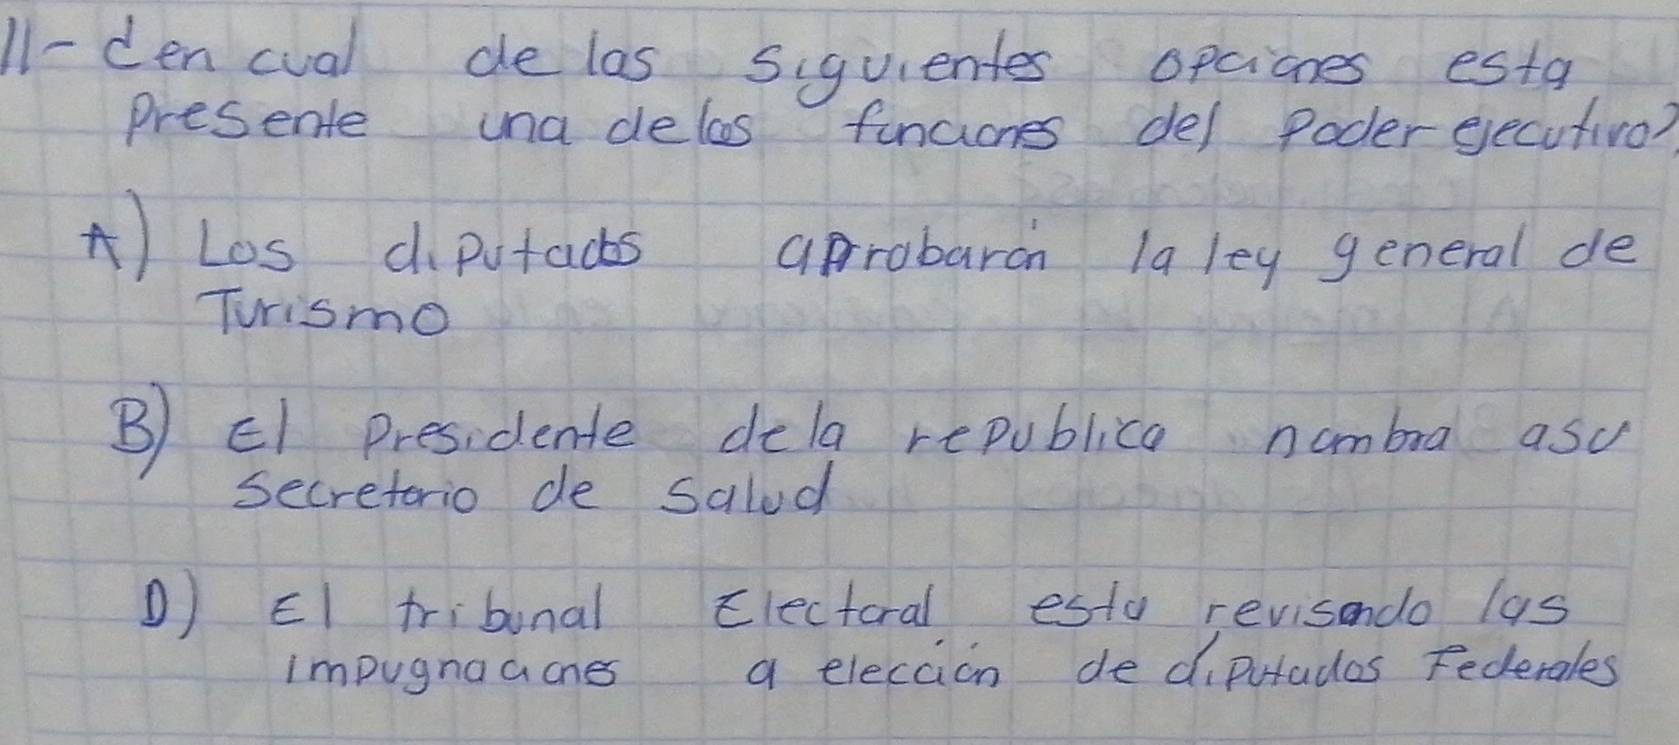 11- ¿en cual de las siguientes opciones esta
presente una de las funciones del Poder ejecutivo?
A) Los diputados aprobarón la ley general de
Turismo
B) El presidente de la republica nombra asu
secretario de salud
D) El tribunal Electoral esta revisando las
impugnaciones a elección de diputados Federales